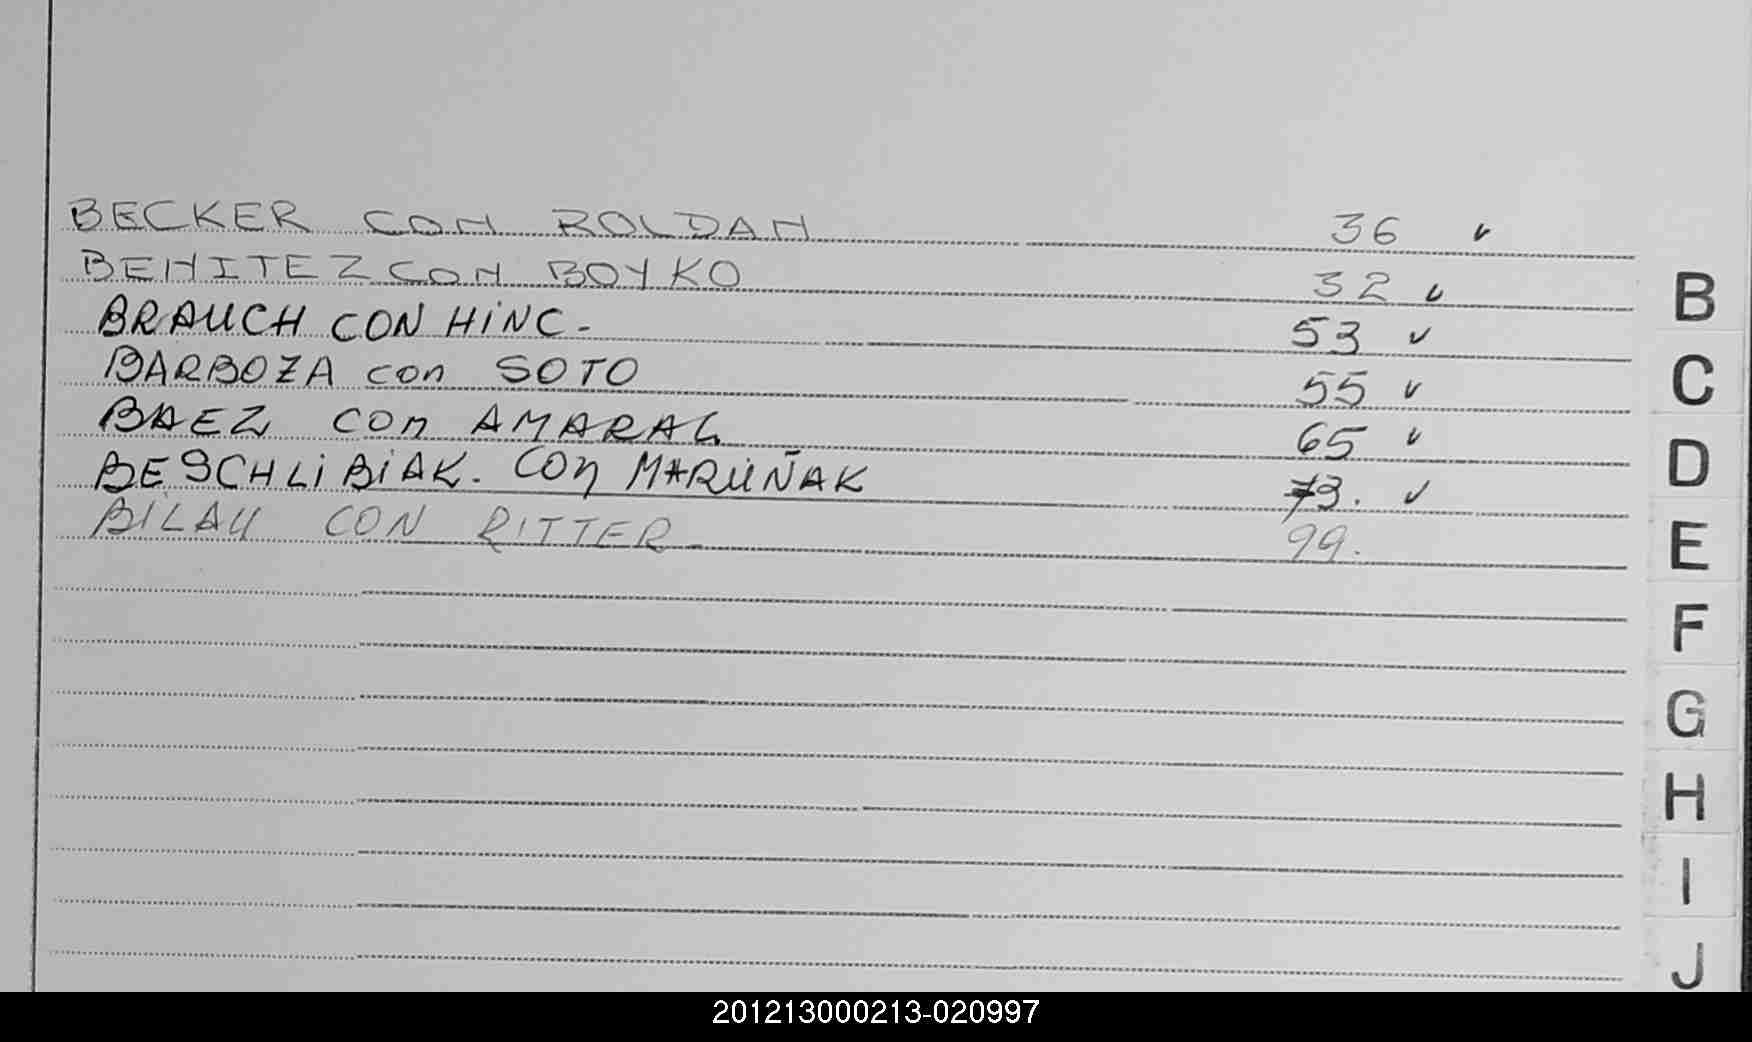 BECKER CON ROLDAN 36 ✓
BENITEZ CON BOYKO 32 ✓
BRAUCH CON HINC. 53 ✓
BARBOZA con SOTO 55 ✓
BAEZ con AMARAL 65 ✓
BESCHLIBIAK. CON MARUÑAK 73. ✓
BILAU CON RITTER 99.
B
C
D
E
F
G
H
I
J
201213000213-020997